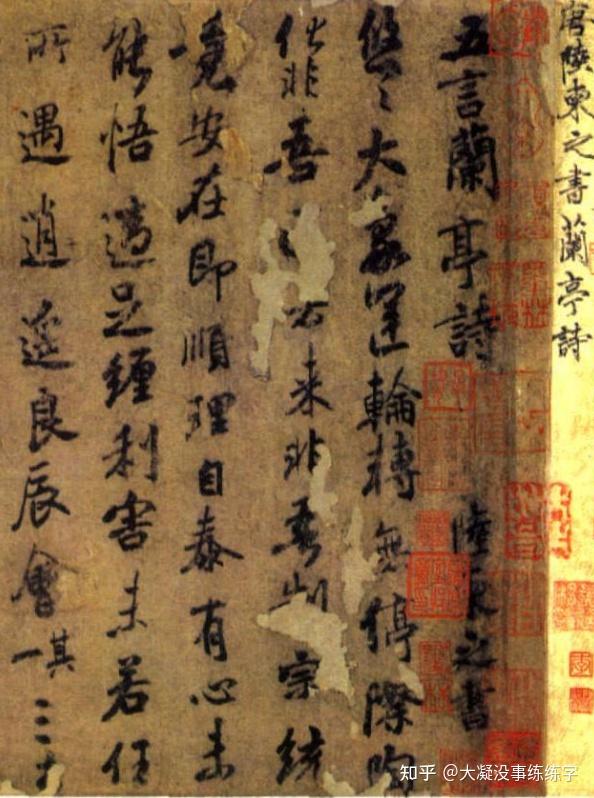 唐陸柬之書蘭亭詩
五言蘭亭詩 陸柬之書
悠〻大象運輪轉無停際陶
化非吾去来非吾制宗統
竟安在即順理自泰有心未
能悟適足纏利害未若任
所遇逍遥良辰會 其一 三
知乎 @大凝没事练练字